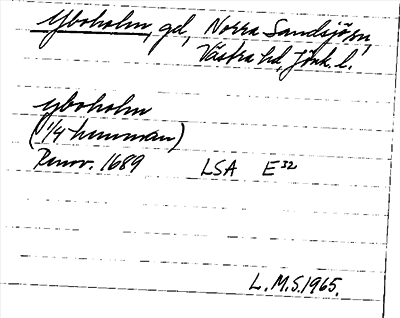 Yboholm, gd, Norra Sandsjö sn,
Västra hd, Jönk. l.
Yboholm
(1/4 hemman)
Renov. 1689 LSA E 32
L. M. S. 1965.